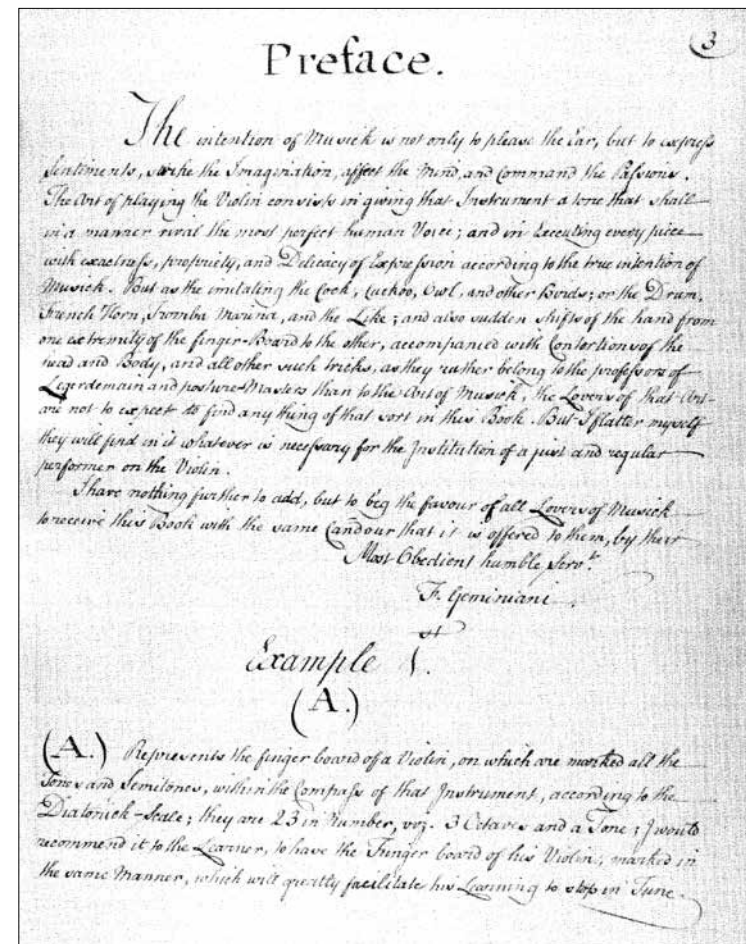 3
Preface.
The intention of Musick is not only to please the Ear, but to express
Sentiments, strike the Imagination, affect the Mind, and Command the Passions.
The Art of playing the Violin consists in giving that Instrument a tone that shall
in a manner rival the most perfect human Voice; and in Executing every piece
with exactness, propriety, and Delicacy of Expression according to the true intention of
Musick. But as the imitating the Cock, Cuckoo, Owl, and other Birds; or the Drum,
French Horn, Tromba Marina, and the Like; and also sudden shifts of the hand from
one extremity of the finger-Board to the other, accompanied with Contortions of the
head and Body, and all other such tricks, as they rather belong to the professors of
Legerdemain and posture-Masters than to the Art of Musick, the Lovers of that Art
are not to expect to find any thing of that sort in this Book. But I flatter myself
they will find in it whatever is necessary for the Institution of a just and regular
performer on the Violin.
I have nothing further to add, but to beg the favour of all Lovers of Musick
to receive this Book with the same Candour that it is offered to them, by their
Most Obedient humble Servt.
F. Geminiani
Example I.st
(A.)
(A.) Represents the finger board of a Violin, on which are marked all the
Tones and Semitones, within the Compass of that Instrument, according to the
Diatonick-Scale; they are 23 in Number, viz. 3 Octaves and a Tone; I would
recommend it to the Learner, to have the Finger board of his Violin, marked in
the same Manner, which will greatly facilitate his Learning to stop in Tune.